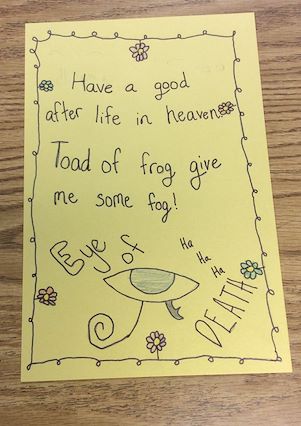 Have a good
after life in heaven
Toad of frog give
me some fog!
Eye of
Ha
Ha
Ha
DEATH